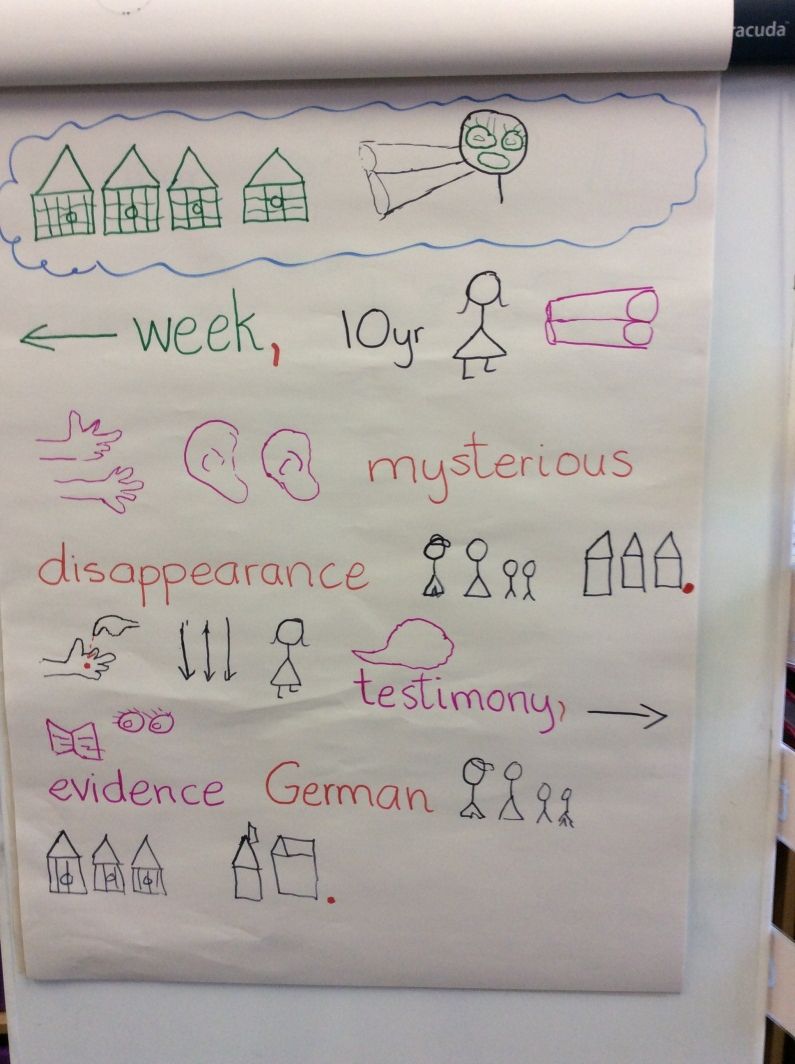 racuda
week, 10yr
mysterious
disappearance .
testimony,
evidence German
.